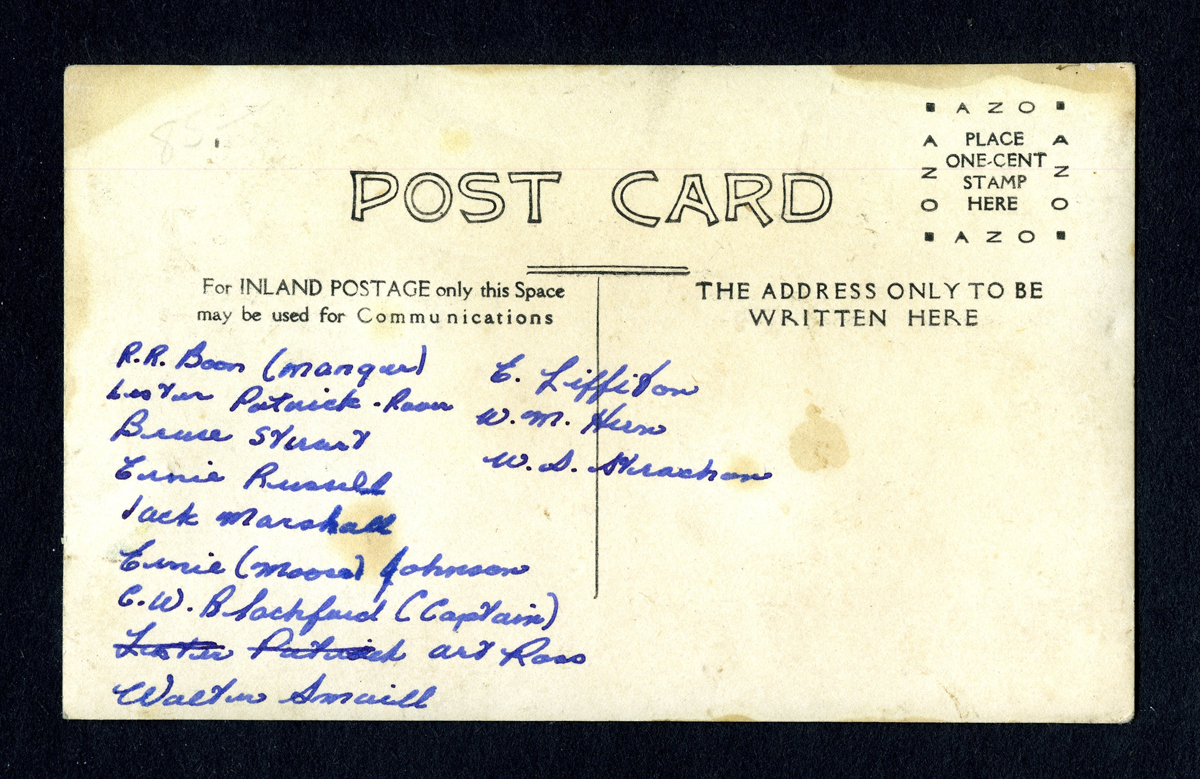 85
AZO
A PLACE A
ONE-CENT
Z STAMP Z
O HERE O
AZO
POST CARD
For INLAND POSTAGE only this Space
may be used for Communications
THE ADDRESS ONLY TO BE
WRITTEN HERE
R.R. Boon (manger)
Lester Patrick - Rover
Bruce Stuart
Ernie Russell
Jack Marshall
Ernie (Moose) Johnson
C.W. Blachford (Captain)
Lester Patrick Art Ross
Walter Smaill
E. Liffiton
W. M. Hern
W. S. Strachan